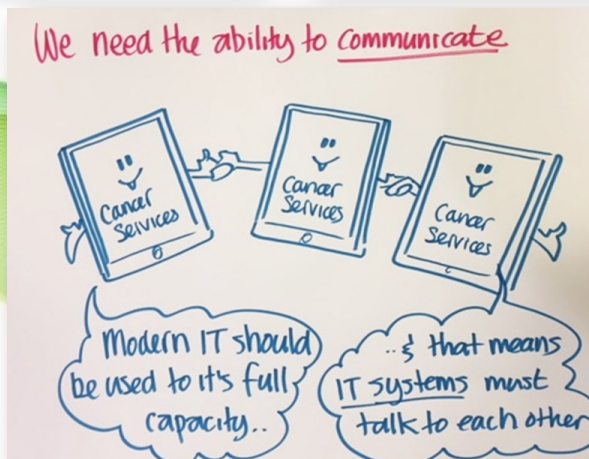 We need the ability to communicate
Cancer
Services
Cancer
Services
Cancer
Services
Modern IT should
be used to it's full
capacity..
..& that means
IT systems must
talk to each other